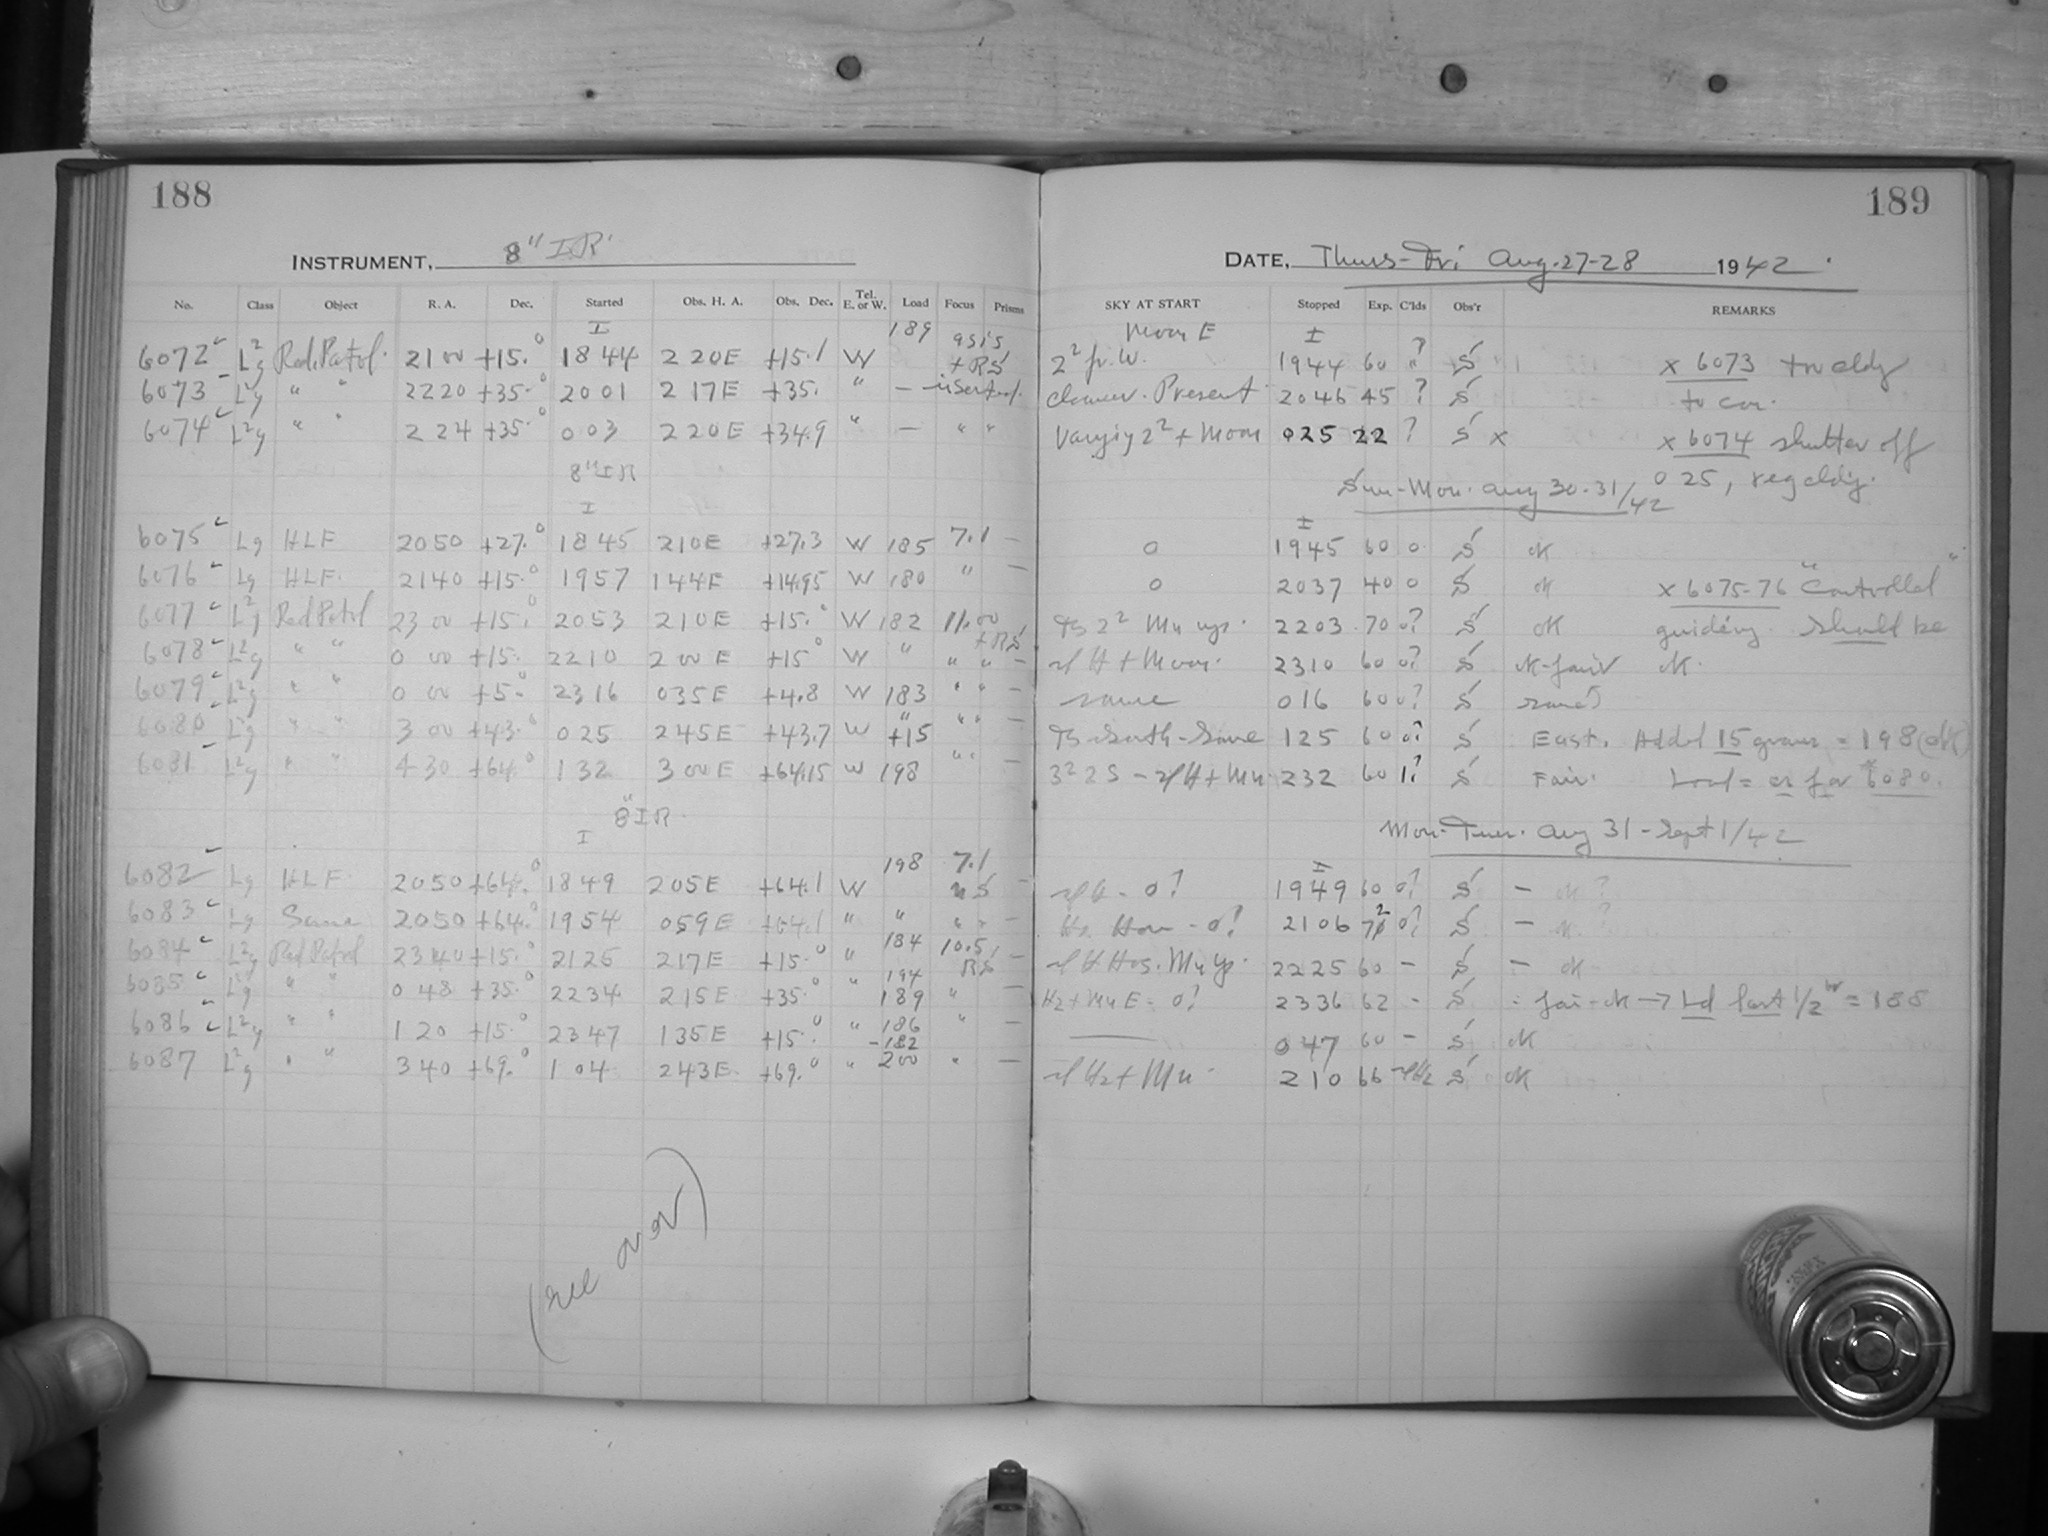 188
INSTRUMENT, 8" IR
No. Class Object R. A. Dec. Started Obs. H. A. Obs. Dec. Tel. E. or W. Load Focus Prisms
I 189
6072 L²g Red. Patrol. 21 00 +15.° 18 44 2 20E +15.1 W + RS
6073 L²g " " 22 20 +35.° 20 01 2 17E +35. " —
6074 L²g " " 2 24 +35.° 0 03 2 20E +34.9 " — " "
8" IR
I
6075 Lg HLF 20 50 +27.° 18 45 2 10E +27.3 W 185 7.1 —
6076 Lg HLF. 21 40 +15.° 19 57 1 44E +14.95 W 180 " —
6077 L²g Red Patrol 23 00 +15.° 20 53 2 10E +15.° W 182 11.00 + RS
6078 L²g " " 0 00 +15. 22 10 2 00 E +15° W " " " —
6079 L²g " " 0 00 +5.° 23 16 0 35E +4.8 W 183 " " —
6080 L²g " " 3 00 +43.° 0 25 2 45E +43.7 W " +15 " " —
6081 L²g " " 4 30 +64.° 1 32 3 00E +64.15 W 198 " " —
8" IR
I
6082 Lg HLF. 20 50 +64.° 18 49 2 05E +64.1 W 198 7.1 —
6083 Lg Same 20 50 +64.° 19 54 0 59E +64.1 " " " " —
6084 L²g Red Patrol 23 40 +15.° 21 25 2 17E +15.° " 184 10.5, RS —
6085 L²g " " 0 48 +35.° 22 34 2 15E +35.° " 194 189 " —
6086 L²g " " 1 20 +15.° 23 47 1 35E +15.° " 186 -182 " —
6087 L²g " " 3 40 +69.° 1 04 2 43E +69.° " 200 " —
(see over)
189
DATE, Thurs-Fri Aug. 27-28 1942.
SKY AT START Stopped Exp. C'lds Obs'r REMARKS
Moon E I
2² fr. W. 19 44 60 ? S x 6073 too cldy
Present 20 46 45 ? S to con.
Varying 2² + Moon 0 25 22 ? S x x 6074 shutter off
0 25, reg cldy.
Sun-Mon. Aug 30-31/42
I
0 19 45 60 0 S OK
0 20 37 40 0 S OK x 6075-76 "Controlled"
2² Mn up. 22 03 70 0? S OK guiding. Should be
H + Moon. 23 10 60 0? S OK-fair OK.
same 0 16 60 0? S same
South-Same 1 25 60 0? S East. Added 15 grams = 198 (OK)
2 32 60 1? S Fair. Load = as for #6080.
Mon-Tues. Aug 31-Sept 1/42
I
0? 19 49 60 0? S — OK?
0? 21 06 72 0? S — OK?
22 25 60 — S — OK
Hz + Mn E = 0? 23 36 62 - S fair-OK → Ld last 1/2 hr = 188
— 0 47 60 — S OK
Hz + Mn. 2 10 66 S OK